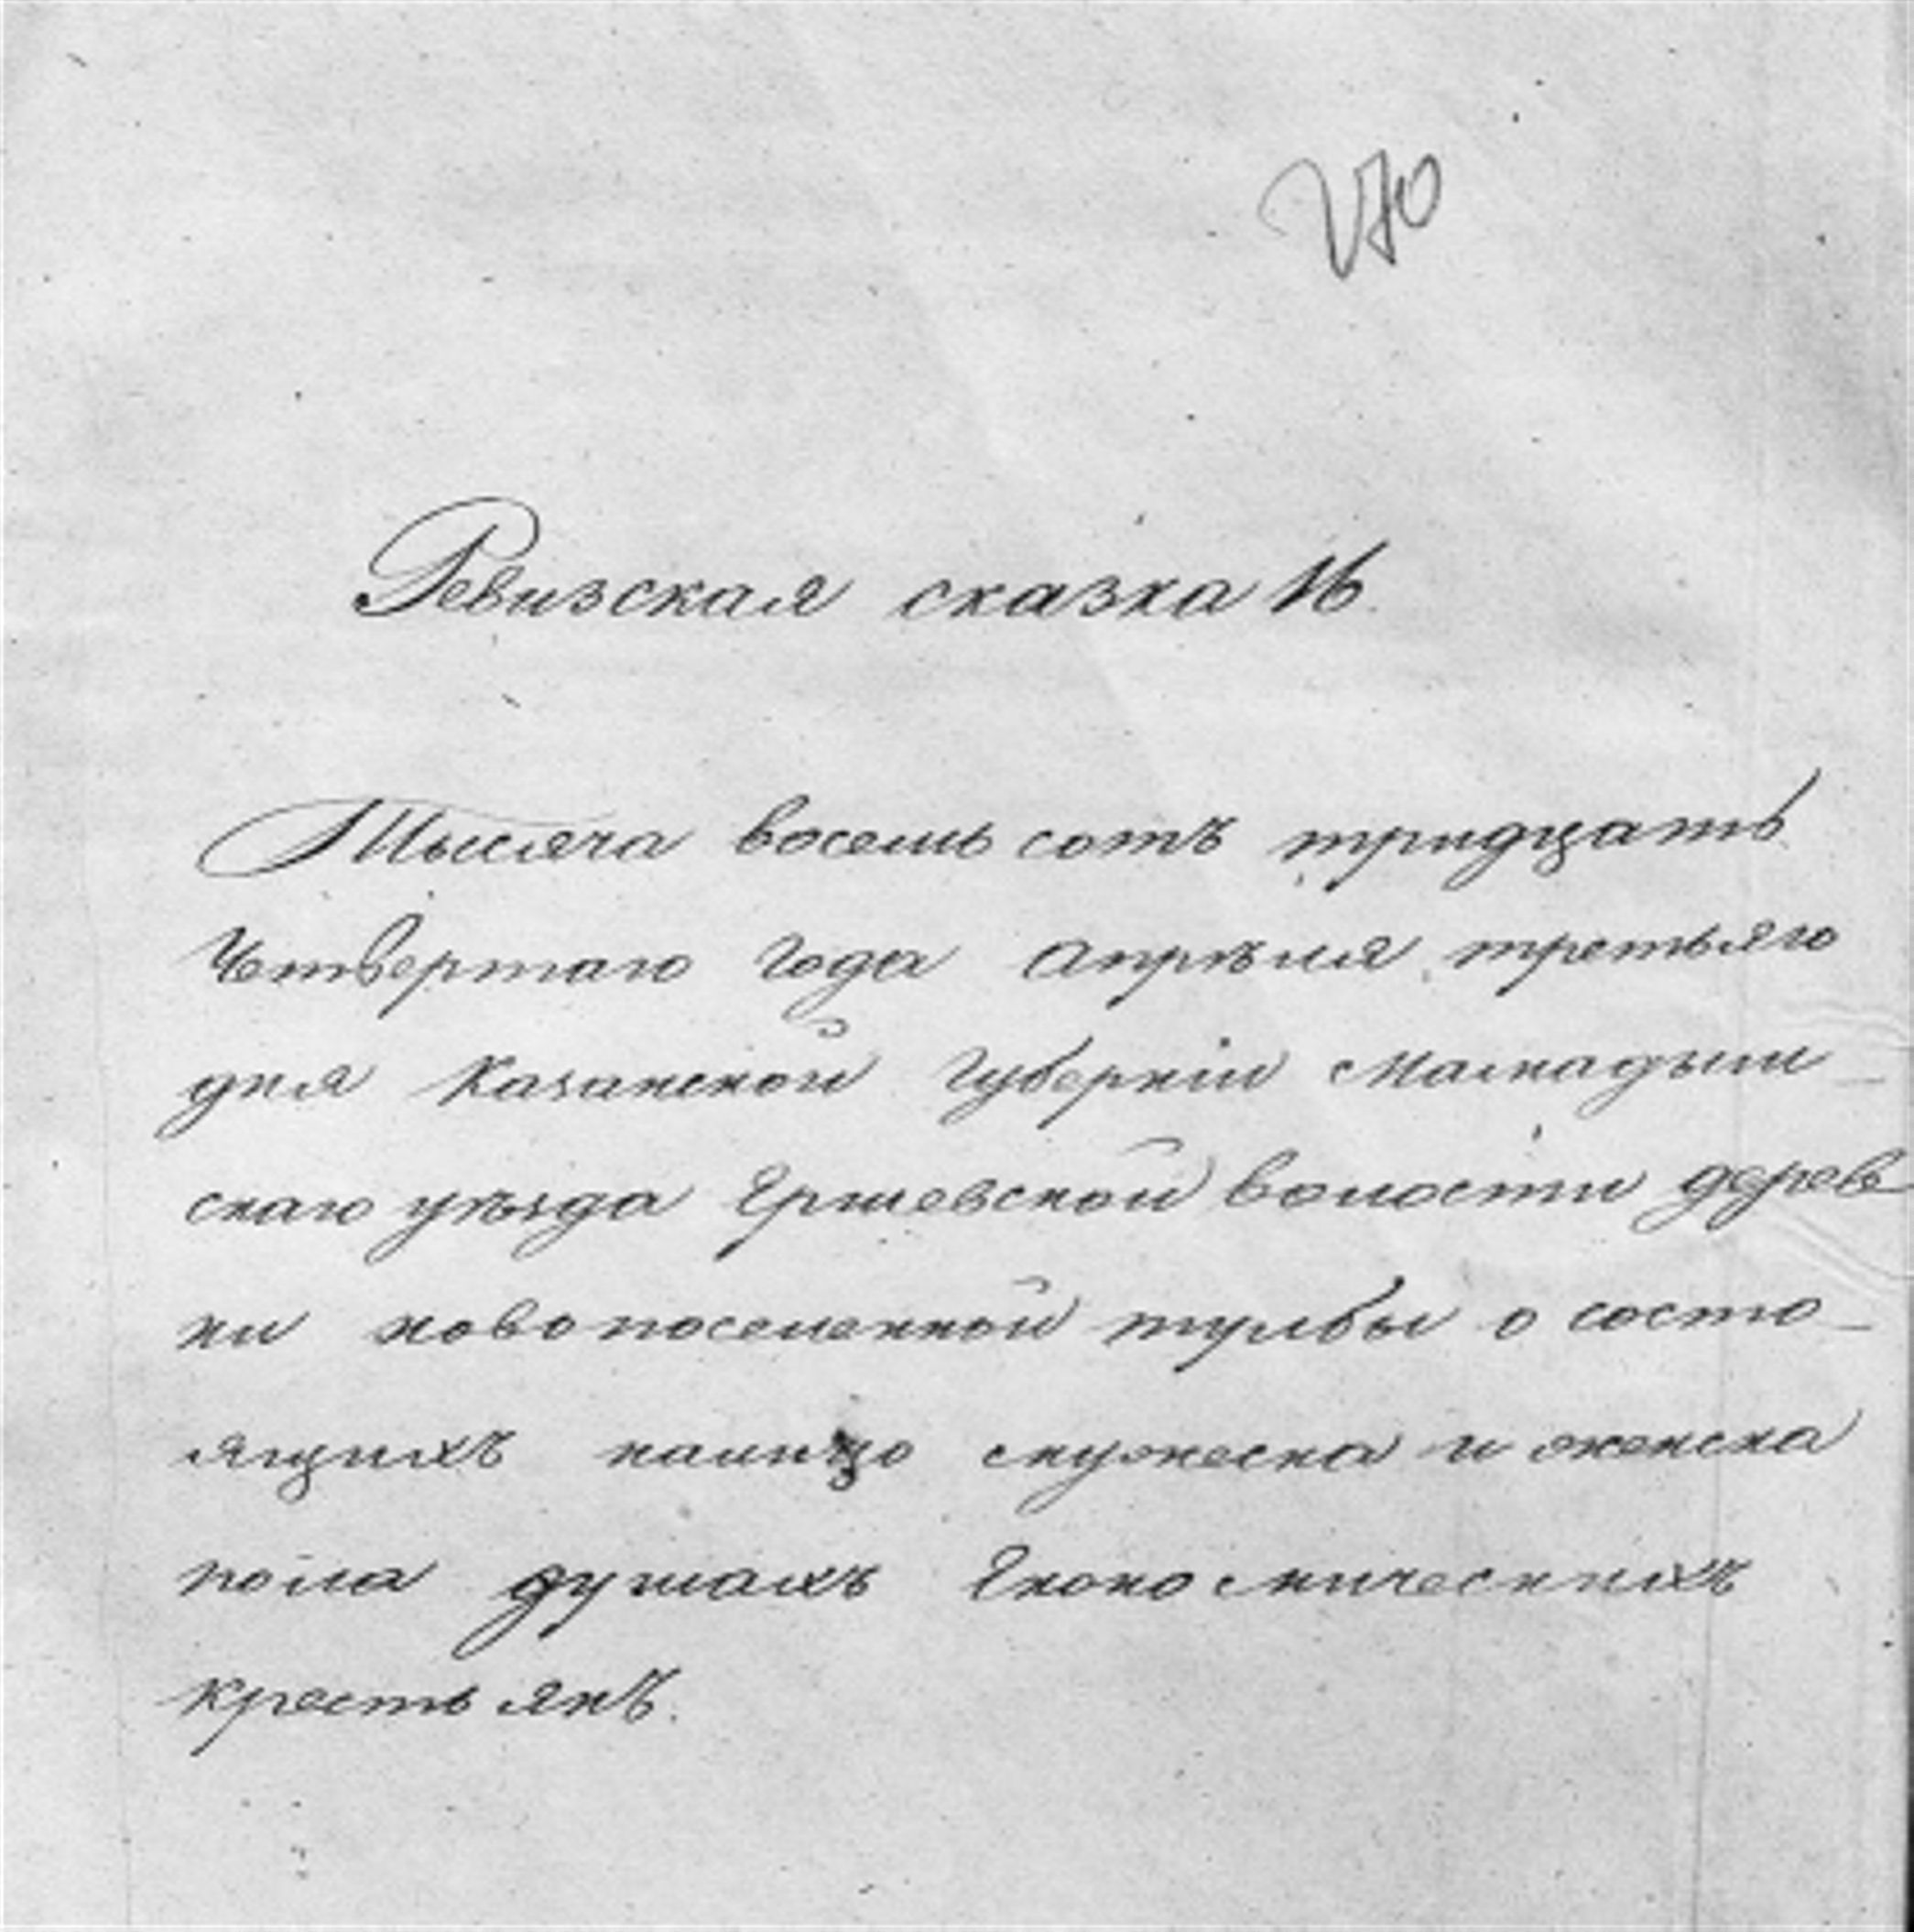 270
Ревизская сказка 16.
Тысяча восемь сотъ тридцать
Четвертаго года Апрѣля третьяго
дня Казанской Губерніи Мамадыш-
скаго уѣзда Ершевской волости дерев
ни новопоселенной тулбы о состо-
ящихъ налицо мужеска и женска
пола душахъ Економическихъ
крестьянъ.